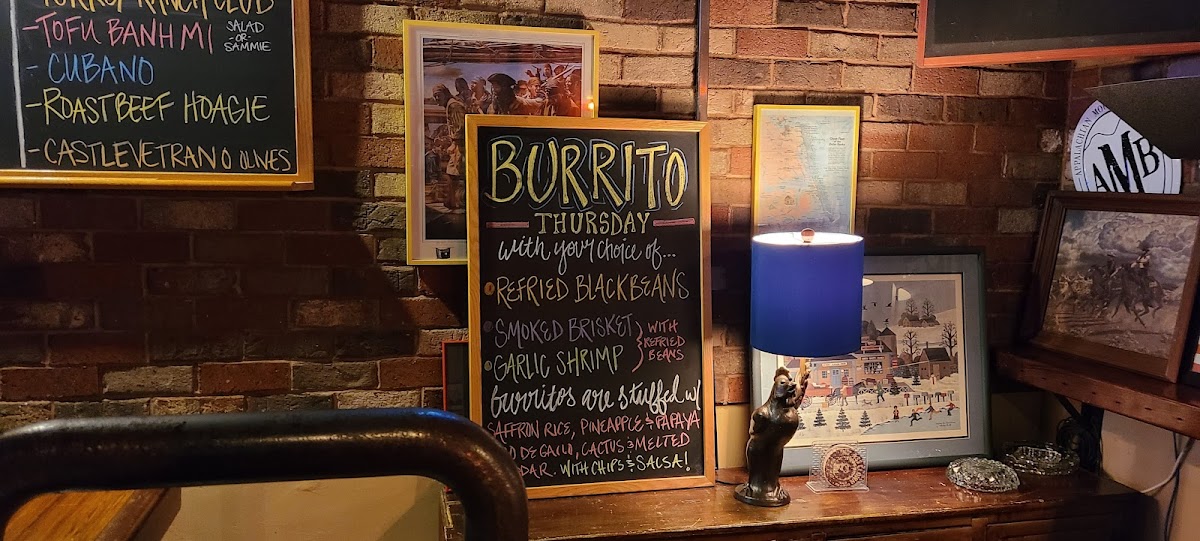 -TOFU BANH MI SALAD
-OR-
SAMMIE
- CUBANO
-ROAST BEEF HOAGIE
-CASTLEVETRANO OLIVES
BURRITO
THURSDAY
with your choice of...
•REFRIED BLACK BEANS
•SMOKED BRISKET
•GARLIC SHRIMP
WITH
REFRIED
BEANS
burritos are stuffed w/
SAFFRON RICE, PINEAPPLE & PAPAYA
DE GALLO, CACTUS & MELTED
WITH CHIPS & SALSA!
APPALACHIAN
AMB